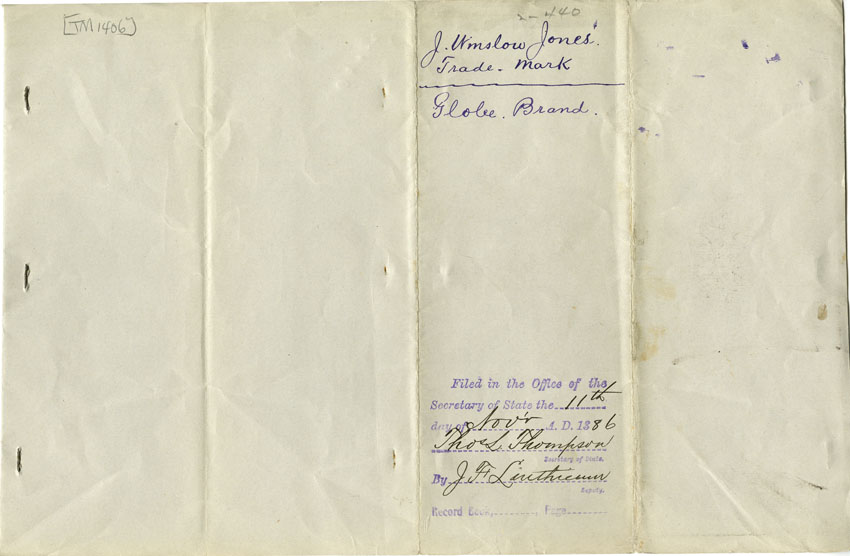 [TM 1406]
2-440
J. Winslow Jones'
Trade-Mark
Globe. Brand.
Filed in the Office of the
Secretary of State the 11th
day of Nov'r A. D. 1886
Thos L. Thompson
Secretary of State.
By J. F. Linthicum
Deputy.
Record Book, , Page